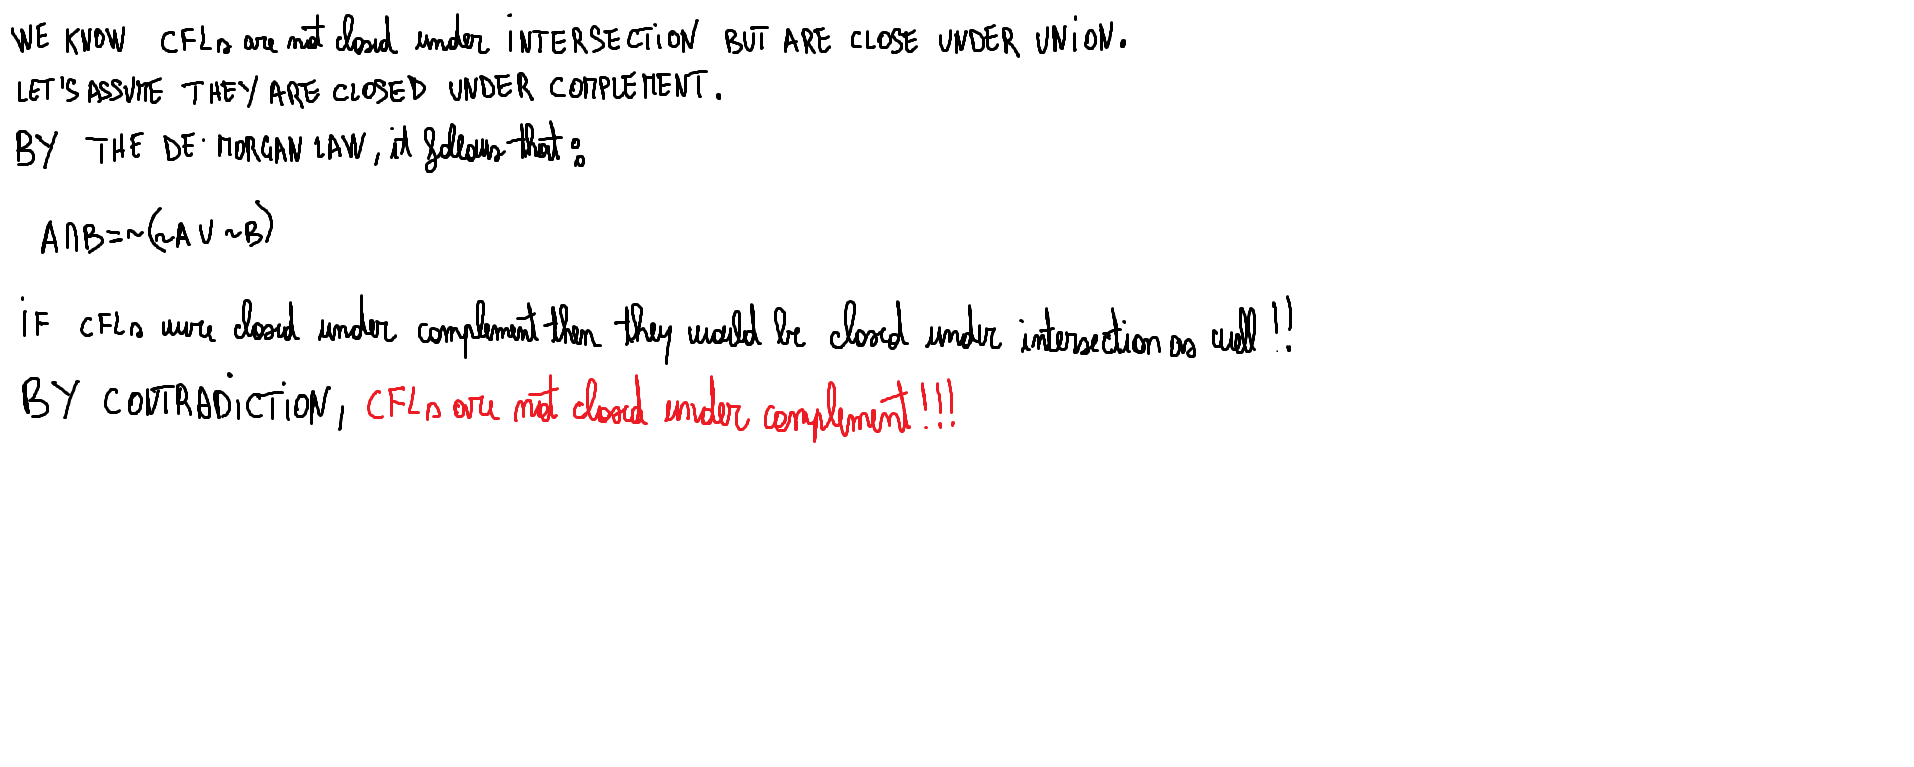 WE KNOW CFLs are not closed under INTERSECTION BUT ARE CLOSE UNDER UNION.
LET'S ASSUME THEY ARE CLOSED UNDER COMPLEMENT.
BY THE DE MORGAN LAW, it follows that:
A∩B=~(~A∪~B)
IF CFLs were closed under complement then they would be closed under intersection as well!!
BY CONTRADICTION, CFLs are not closed under complement!!!